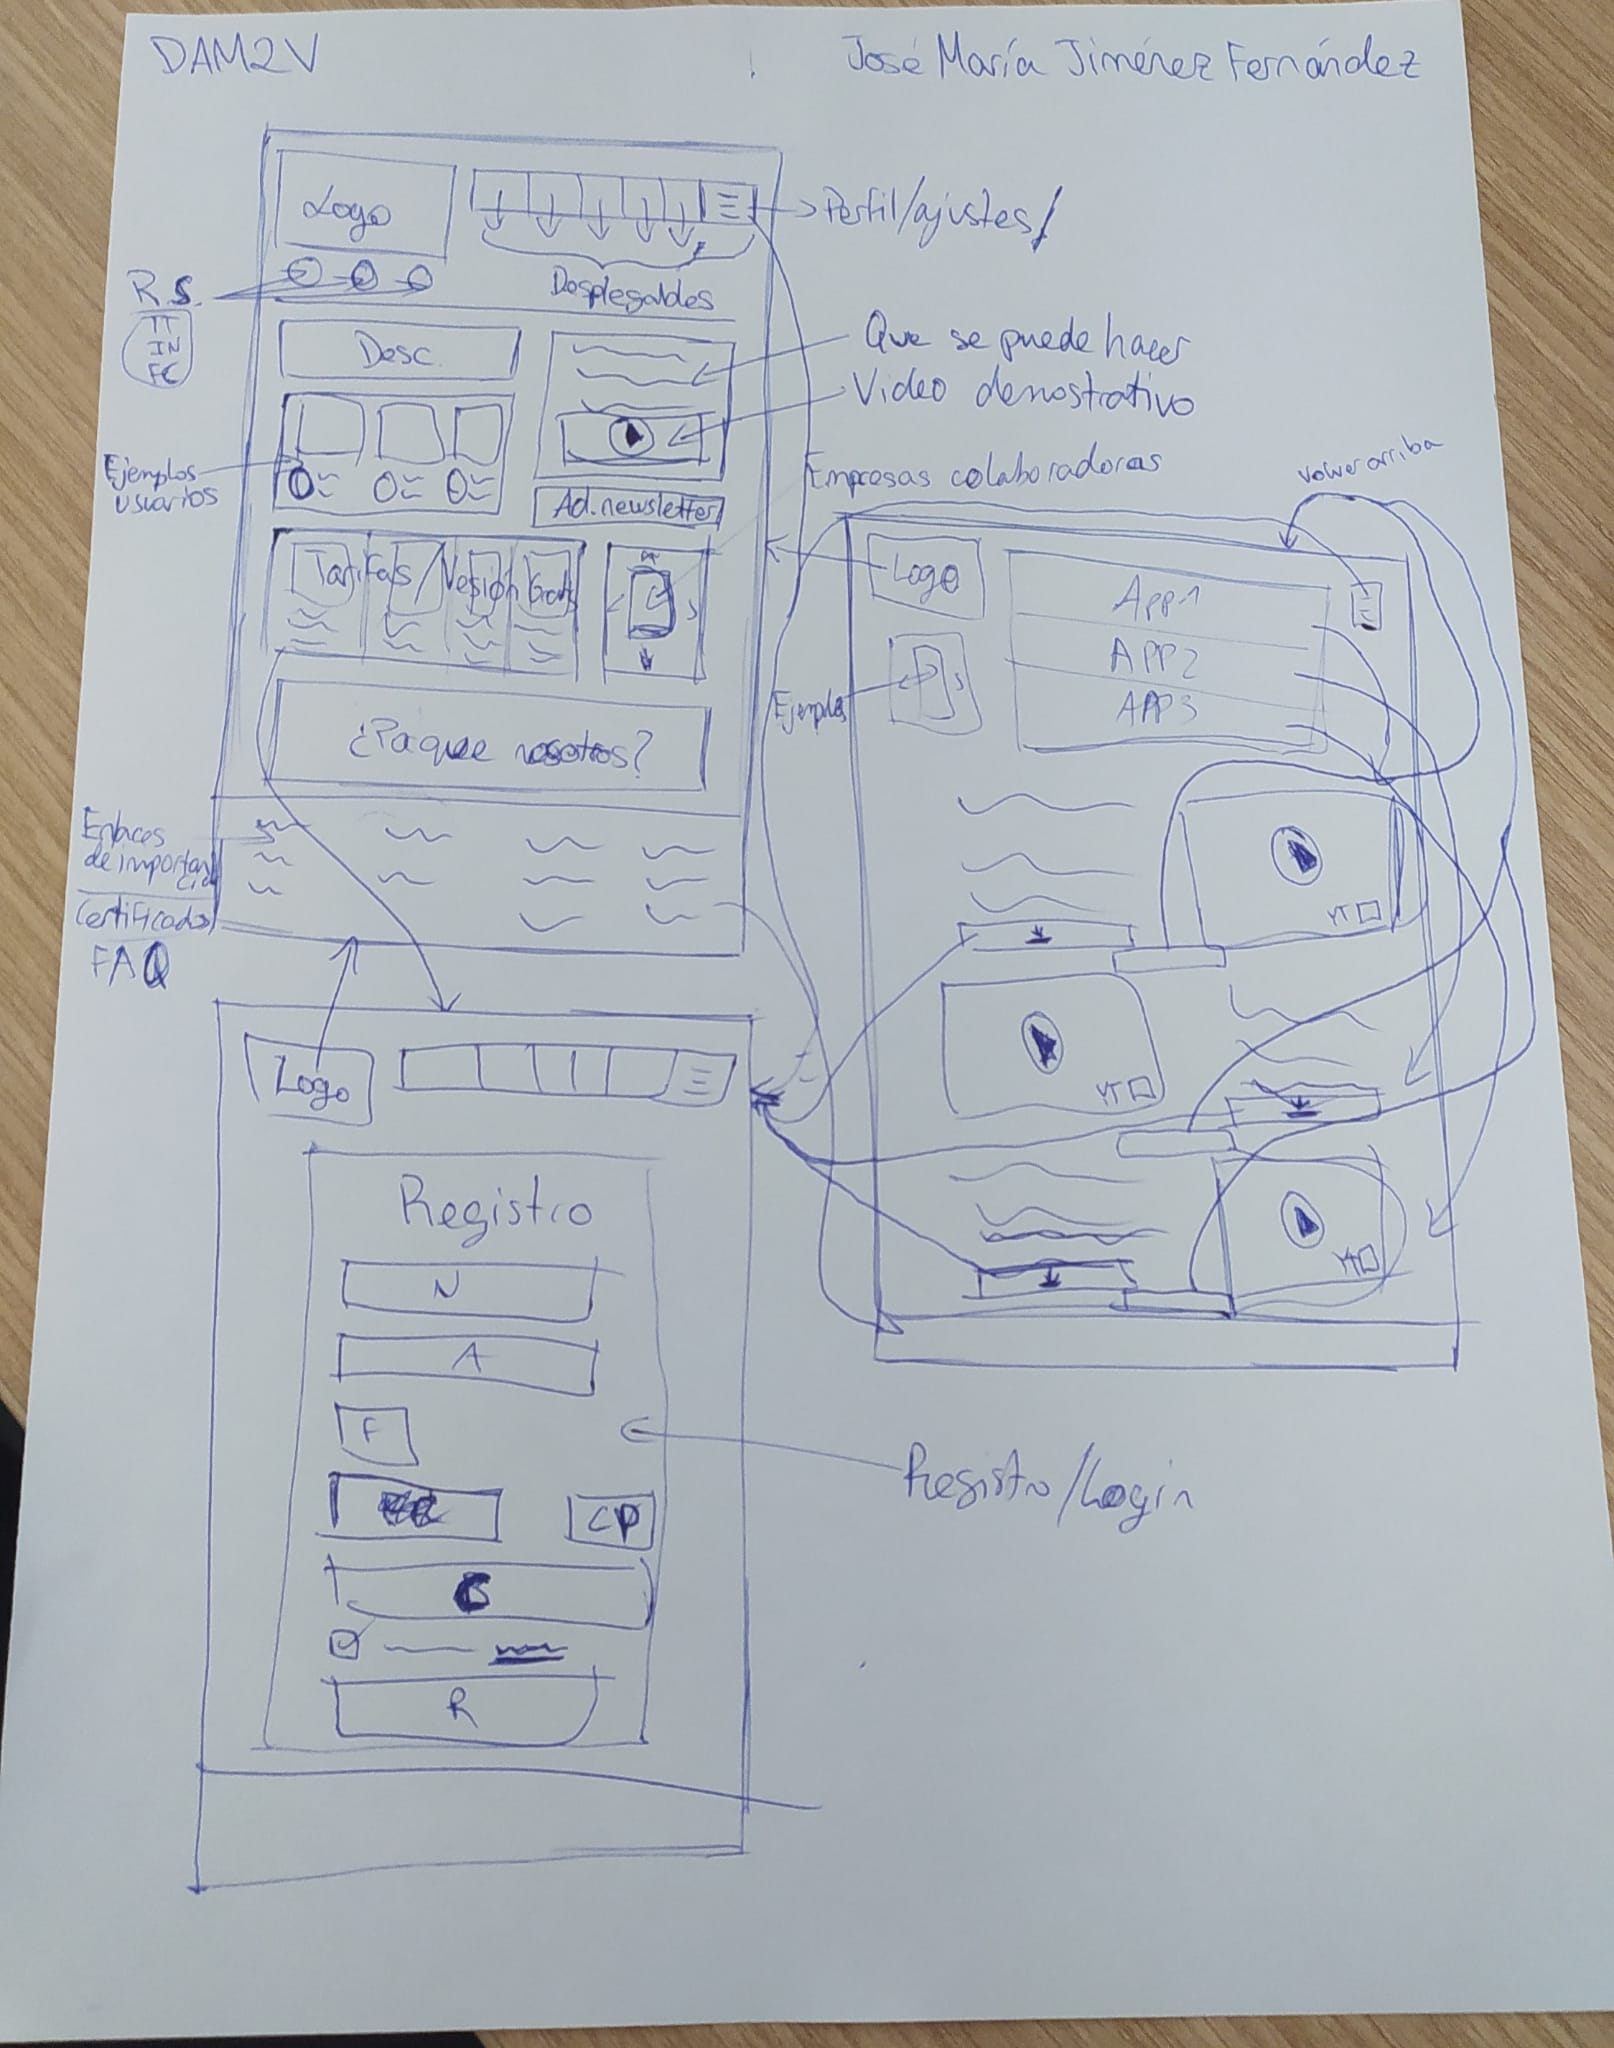 DAM2V
José María Jiménez Fernández
Logo
Perfil/ajustes/
R.S.
TT
IN
FC
Desplegables
Desc.
Que se puede hacer
Video demostrativo
Ejemplos
usuarios
Ad. newsletter
Empresas colaboradoras
Tarifas/Versión Grat
¿Paque nosotros?
Enlaces
de importan
cia
Certificados
FAQ
volver arriba
Logo
APP1
APP2
APP3
Ejemplos
YT
YT
YT
Logo
Registro
N
A
F
CP
C
R
Registro/Login